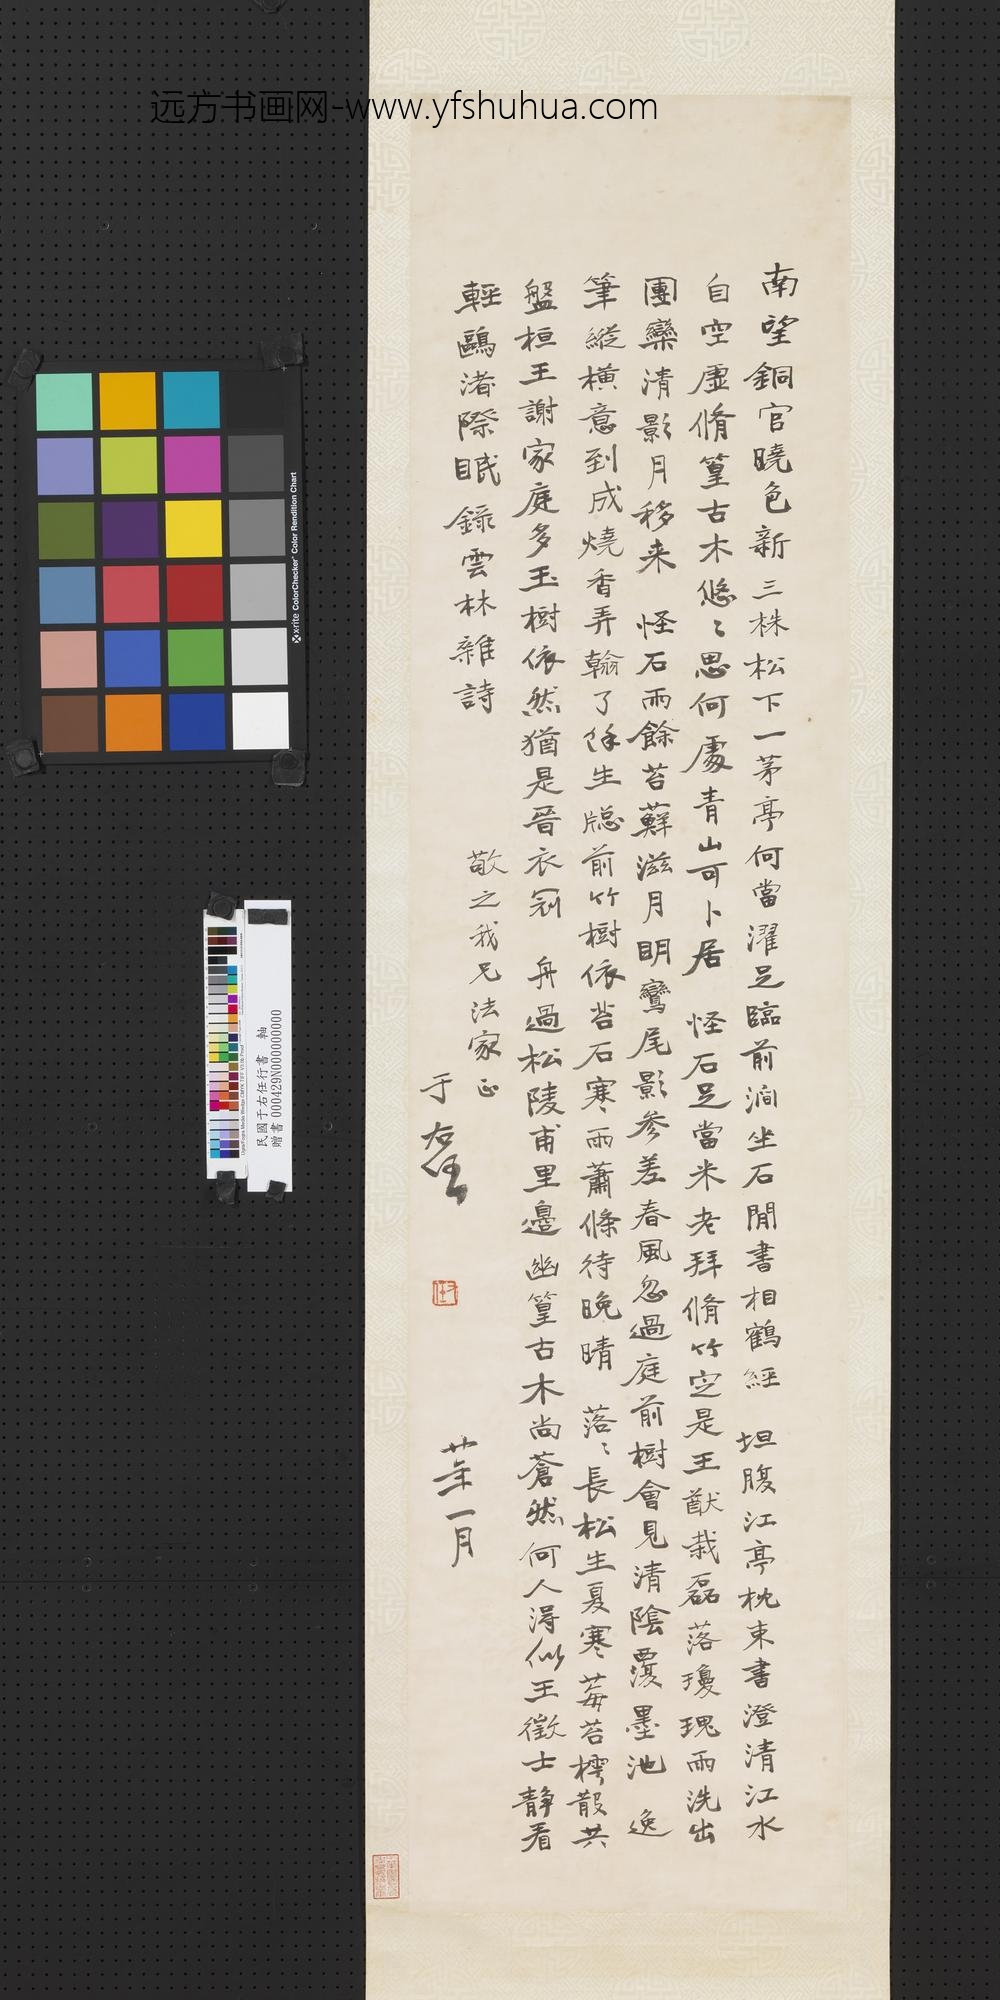 远方书画网-www.yfshuhua.com
南望銅官曉色新三株松下一茅亭何當濯足臨前澗坐石閒書相鶴經 坦腹江亭枕束書澄清江水
自空虛脩篁古木悠〻思何處青山可卜居 怪石足當米老拜脩竹定是王猷栽磊落瓊瑰雨洗出
團欒清影月移来 怪石雨餘苔蘚滋月明鸞尾影參差春風忽過庭前樹會見清陰覆墨池 逸
筆縱橫意到成燒香弄翰了餘生牕前竹樹依苔石寒雨蕭條待晚晴 落〻長松生夏寒莓苔樗散共
盤桓王謝家庭多玉樹依然猶是晉衣冠 舟過松陵甫里邊幽篁古木尚蒼然何人得似王徵士靜看
輕鷗渚際眠 錄雲林雜詩
敬之我兄法家正
于右任
廿年一月
x-rite ColorChecker Color Rendition Chart
民國于右任行書 軸
贈書 000429N000000000